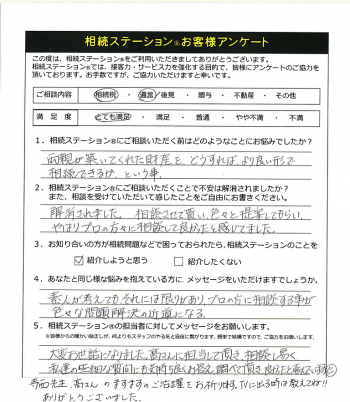 相続ステーション®お客様アンケート
この度は、相続ステーション®をご利用いただきましてありがとうございます。
相続ステーション®では、接客力・サービス力を強化する目的で、皆様にアンケートのご協力を
頂いております。お手数ですが、ご協力いただけますと幸いです。
ご相談内容 相続税 ・ 遺言/後見 ・ 贈与 ・ 不動産 ・ その他
満足度 とても満足 ・ 満足 ・ 普通 ・ やや不満 ・ 不満
1．相続ステーション®にご相談いただく前はどのようなことにお悩みでしたか？
両親が築いてくれた財産を、どうすれば、より良い形で
相続できるか、という事。
2．相続ステーション®にご相談いただくことで不安は解消されましたか？
また、相談を受けていただいて感じたことをご自由にお書きください。
解消されました。相談させて貰い、色々と提案してもらい、
やはりプロの方々に相談して良かったと感じてました。
3．お知り合いの方が相続問題などで困っておられたら、相続ステーション®のことを
☑ 紹介しようと思う □ 紹介したくない
4．あなたと同じ様な悩みを抱えている方に、メッセージをいただけますでしょうか。
素人が考えてもそれには限りがあり、プロの方に相談する事が
色々な問題解決の近道になる。
5．相続ステーション®の担当者に対してメッセージをお願いします。
※皆様からの暖かい励ましが、何よりもスタッフのやる気と自信に繋がります。是非で結構ですので、ご協力をお願いします。
大変お世話になりました。髙さんに担当して頂き、相談し易く、
私達の些細な質問にも気持ち良くお答え、調べて頂き、良かったと喜んでい
寺西先生、髙さんの ますますのご活躍をお祈ります。TVに出る時は教えてね!!
ありがとうございました。